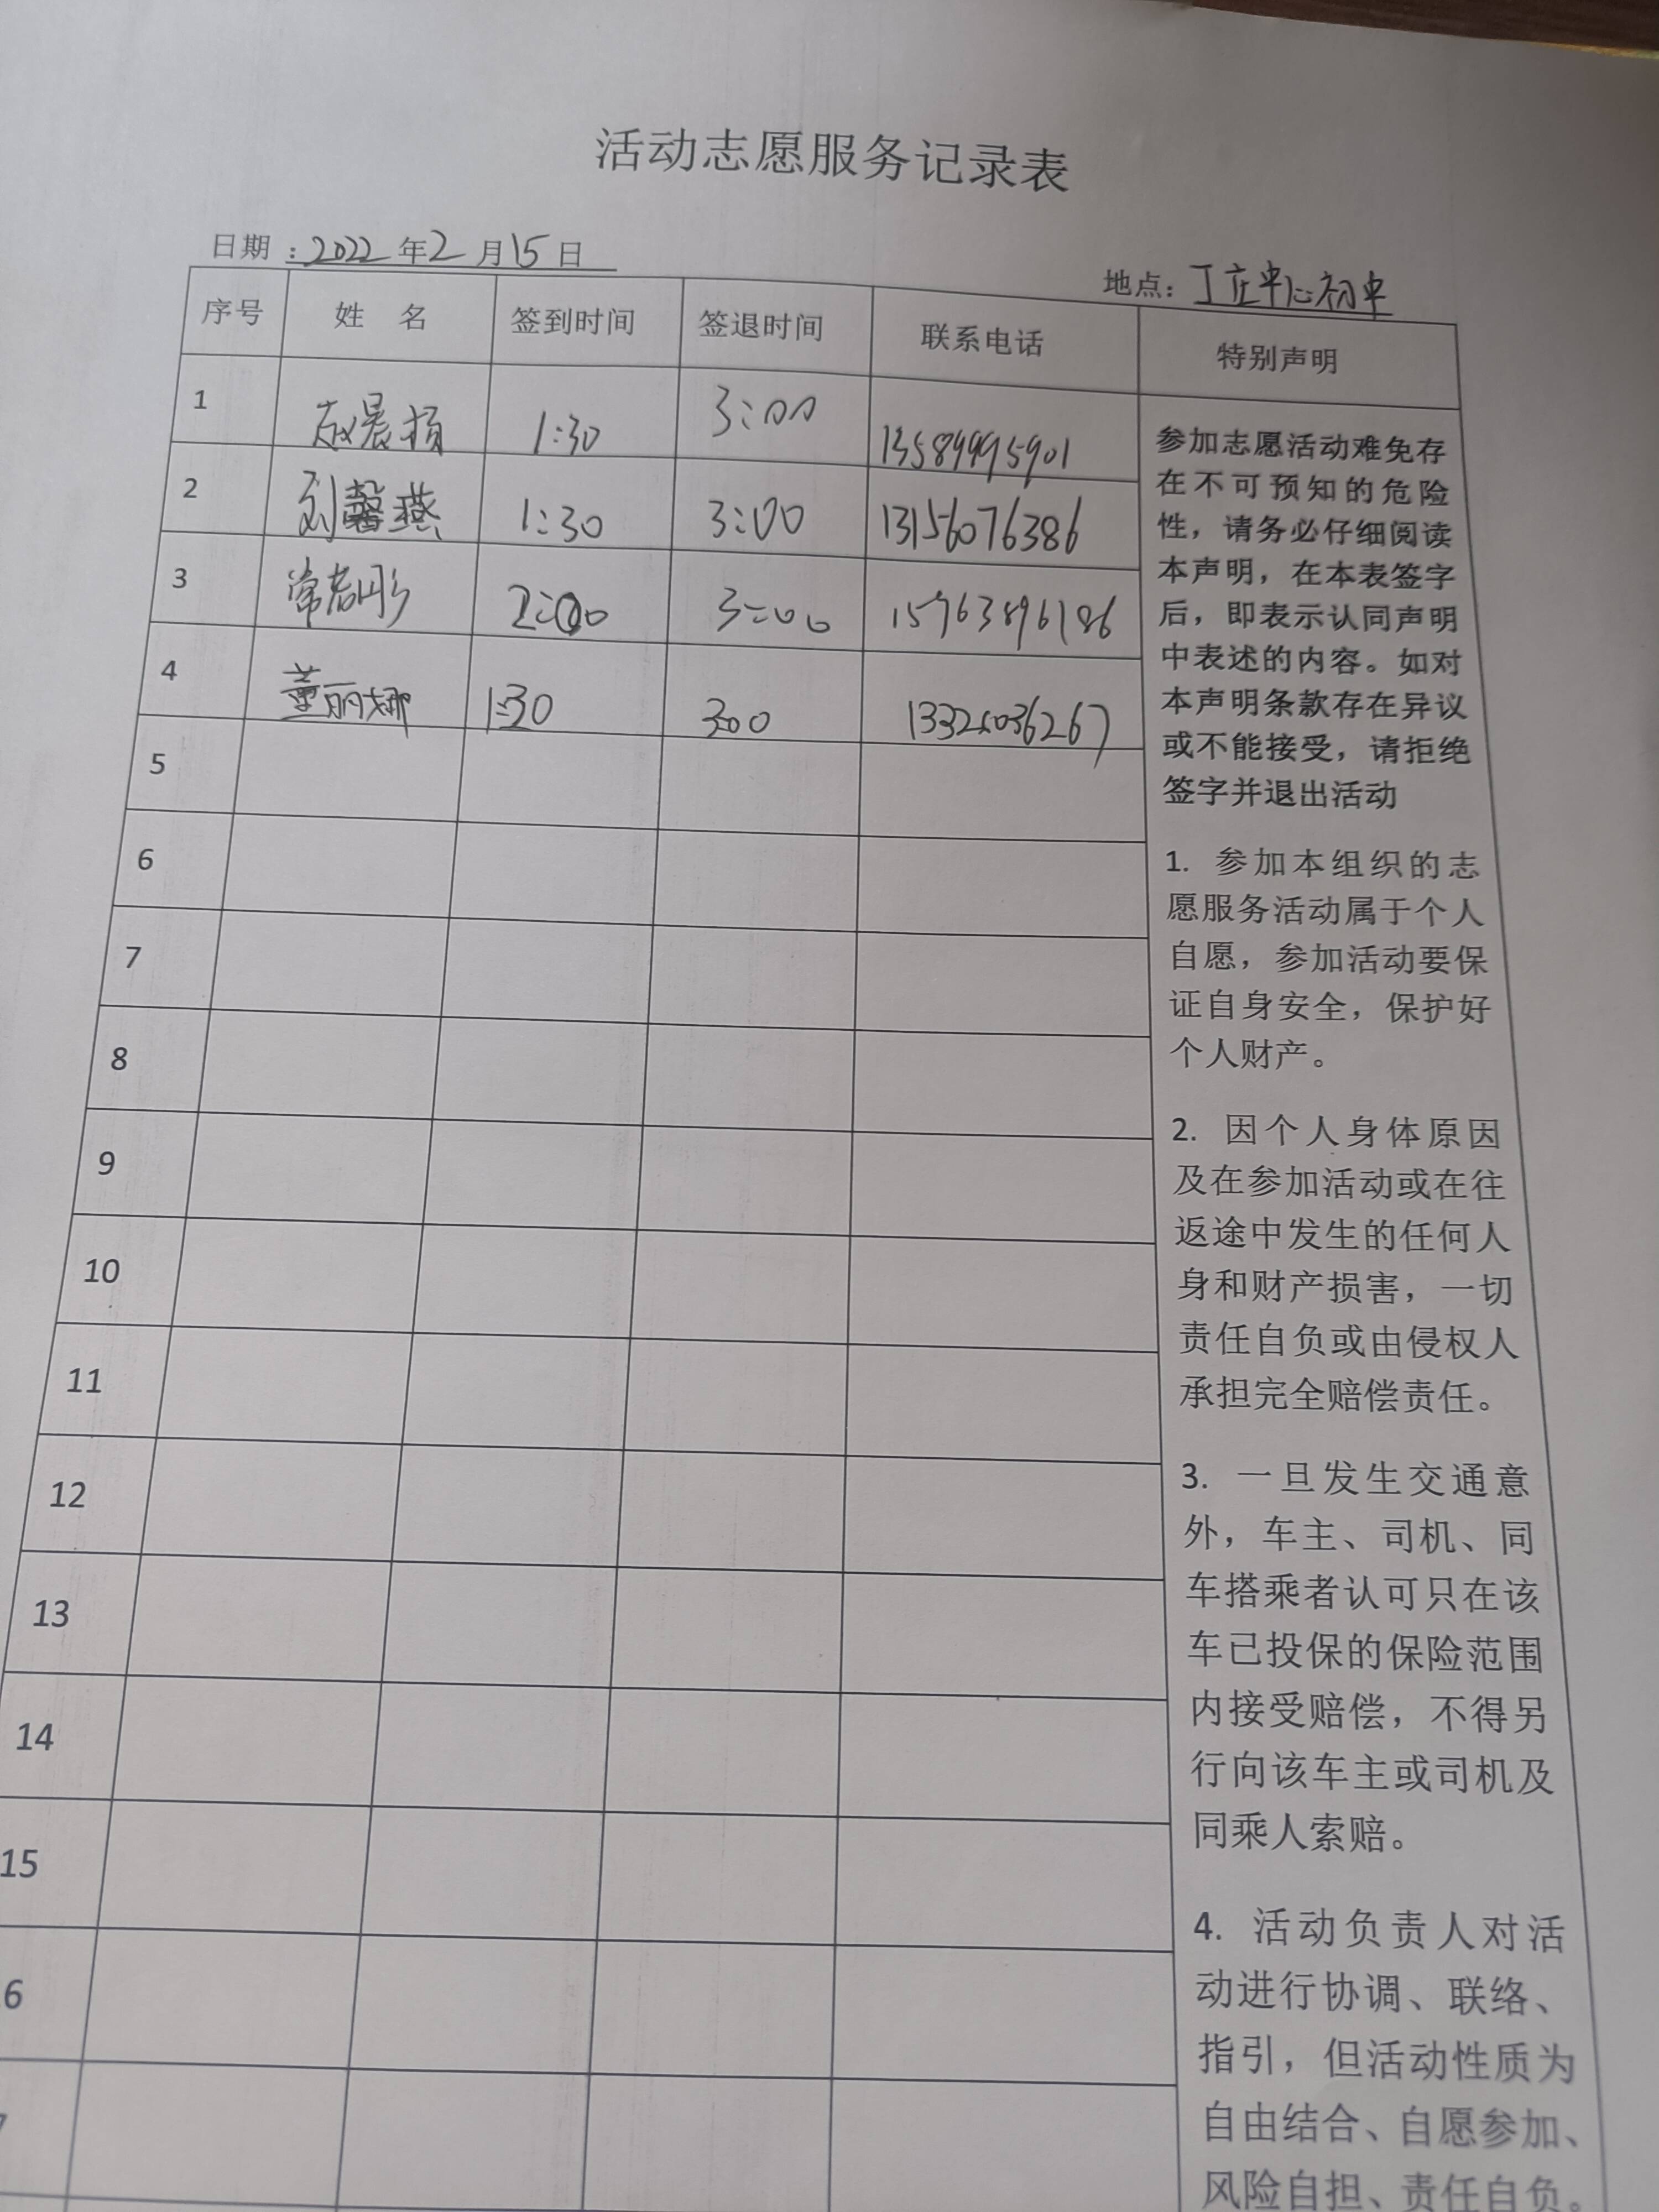 活动志愿服务记录表
日期：2022年2月15日
地点：丁庄中心初中
序号 姓 名 签到时间 签退时间 联系电话 特别声明
1 1:30 3:00 13589995901
2 刘馨燕 1:30 3:00 13156076386
3 常 2:00 3:00 15763896186
4 董丽娜 1:30 3:00
5
6
7
8
9
10
11
12
13
14
15
6
7
参加志愿活动难免存
在不可预知的危险
性，请务必仔细阅读
本声明，在本表签字
后，即表示认同声明
中表述的内容。如对
本声明条款存在异议
或不能接受，请拒绝
签字并退出活动
1. 参加本组织的志
愿服务活动属于个人
自愿，参加活动要保
证自身安全，保护好
个人财产。
2. 因个人身体原因
及在参加活动或在往
返途中发生的任何人
身和财产损害，一切
责任自负或由侵权人
承担完全赔偿责任。
3. 一旦发生交通意
外，车主、司机、同
车搭乘者认可只在该
车已投保的保险范围
内接受赔偿，不得另
行向该车主或司机及
同乘人索赔。
4. 活动负责人对活
动进行协调、联络、
指引，但活动性质为
自由结合、自愿参加、
风险自担、责任自负。